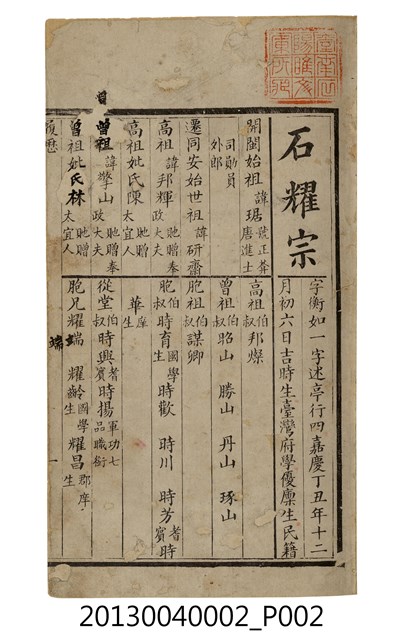 石耀宗
字衡如一字述亭行四嘉慶丁丑年十二
月初六日吉時生臺灣府學優廩生民籍
開閩始祖 諱琚 號正莽 唐進士
司勛員
外郎
遷同安始世祖 諱研齋
高祖 諱邦輝 貤贈奉政大夫
高祖妣氏陳 貤贈太宜人
曾祖 諱擎山 貤贈奉政大夫
曾祖妣氏林 貤贈太宜人
履歷
高祖伯叔邦燦
曾祖伯叔昭山 勝山 丹山 琢山
胞祖伯叔謀卿
胞伯叔時育 國學生 時歡 時川 時芳 耆賓 時
華 庠生
從堂伯叔時興 耆賓 時揚 軍功七品職銜
胞兄耀端 耀齡 國學生 耀昌 郡庠生
端
一
20130040002_P002